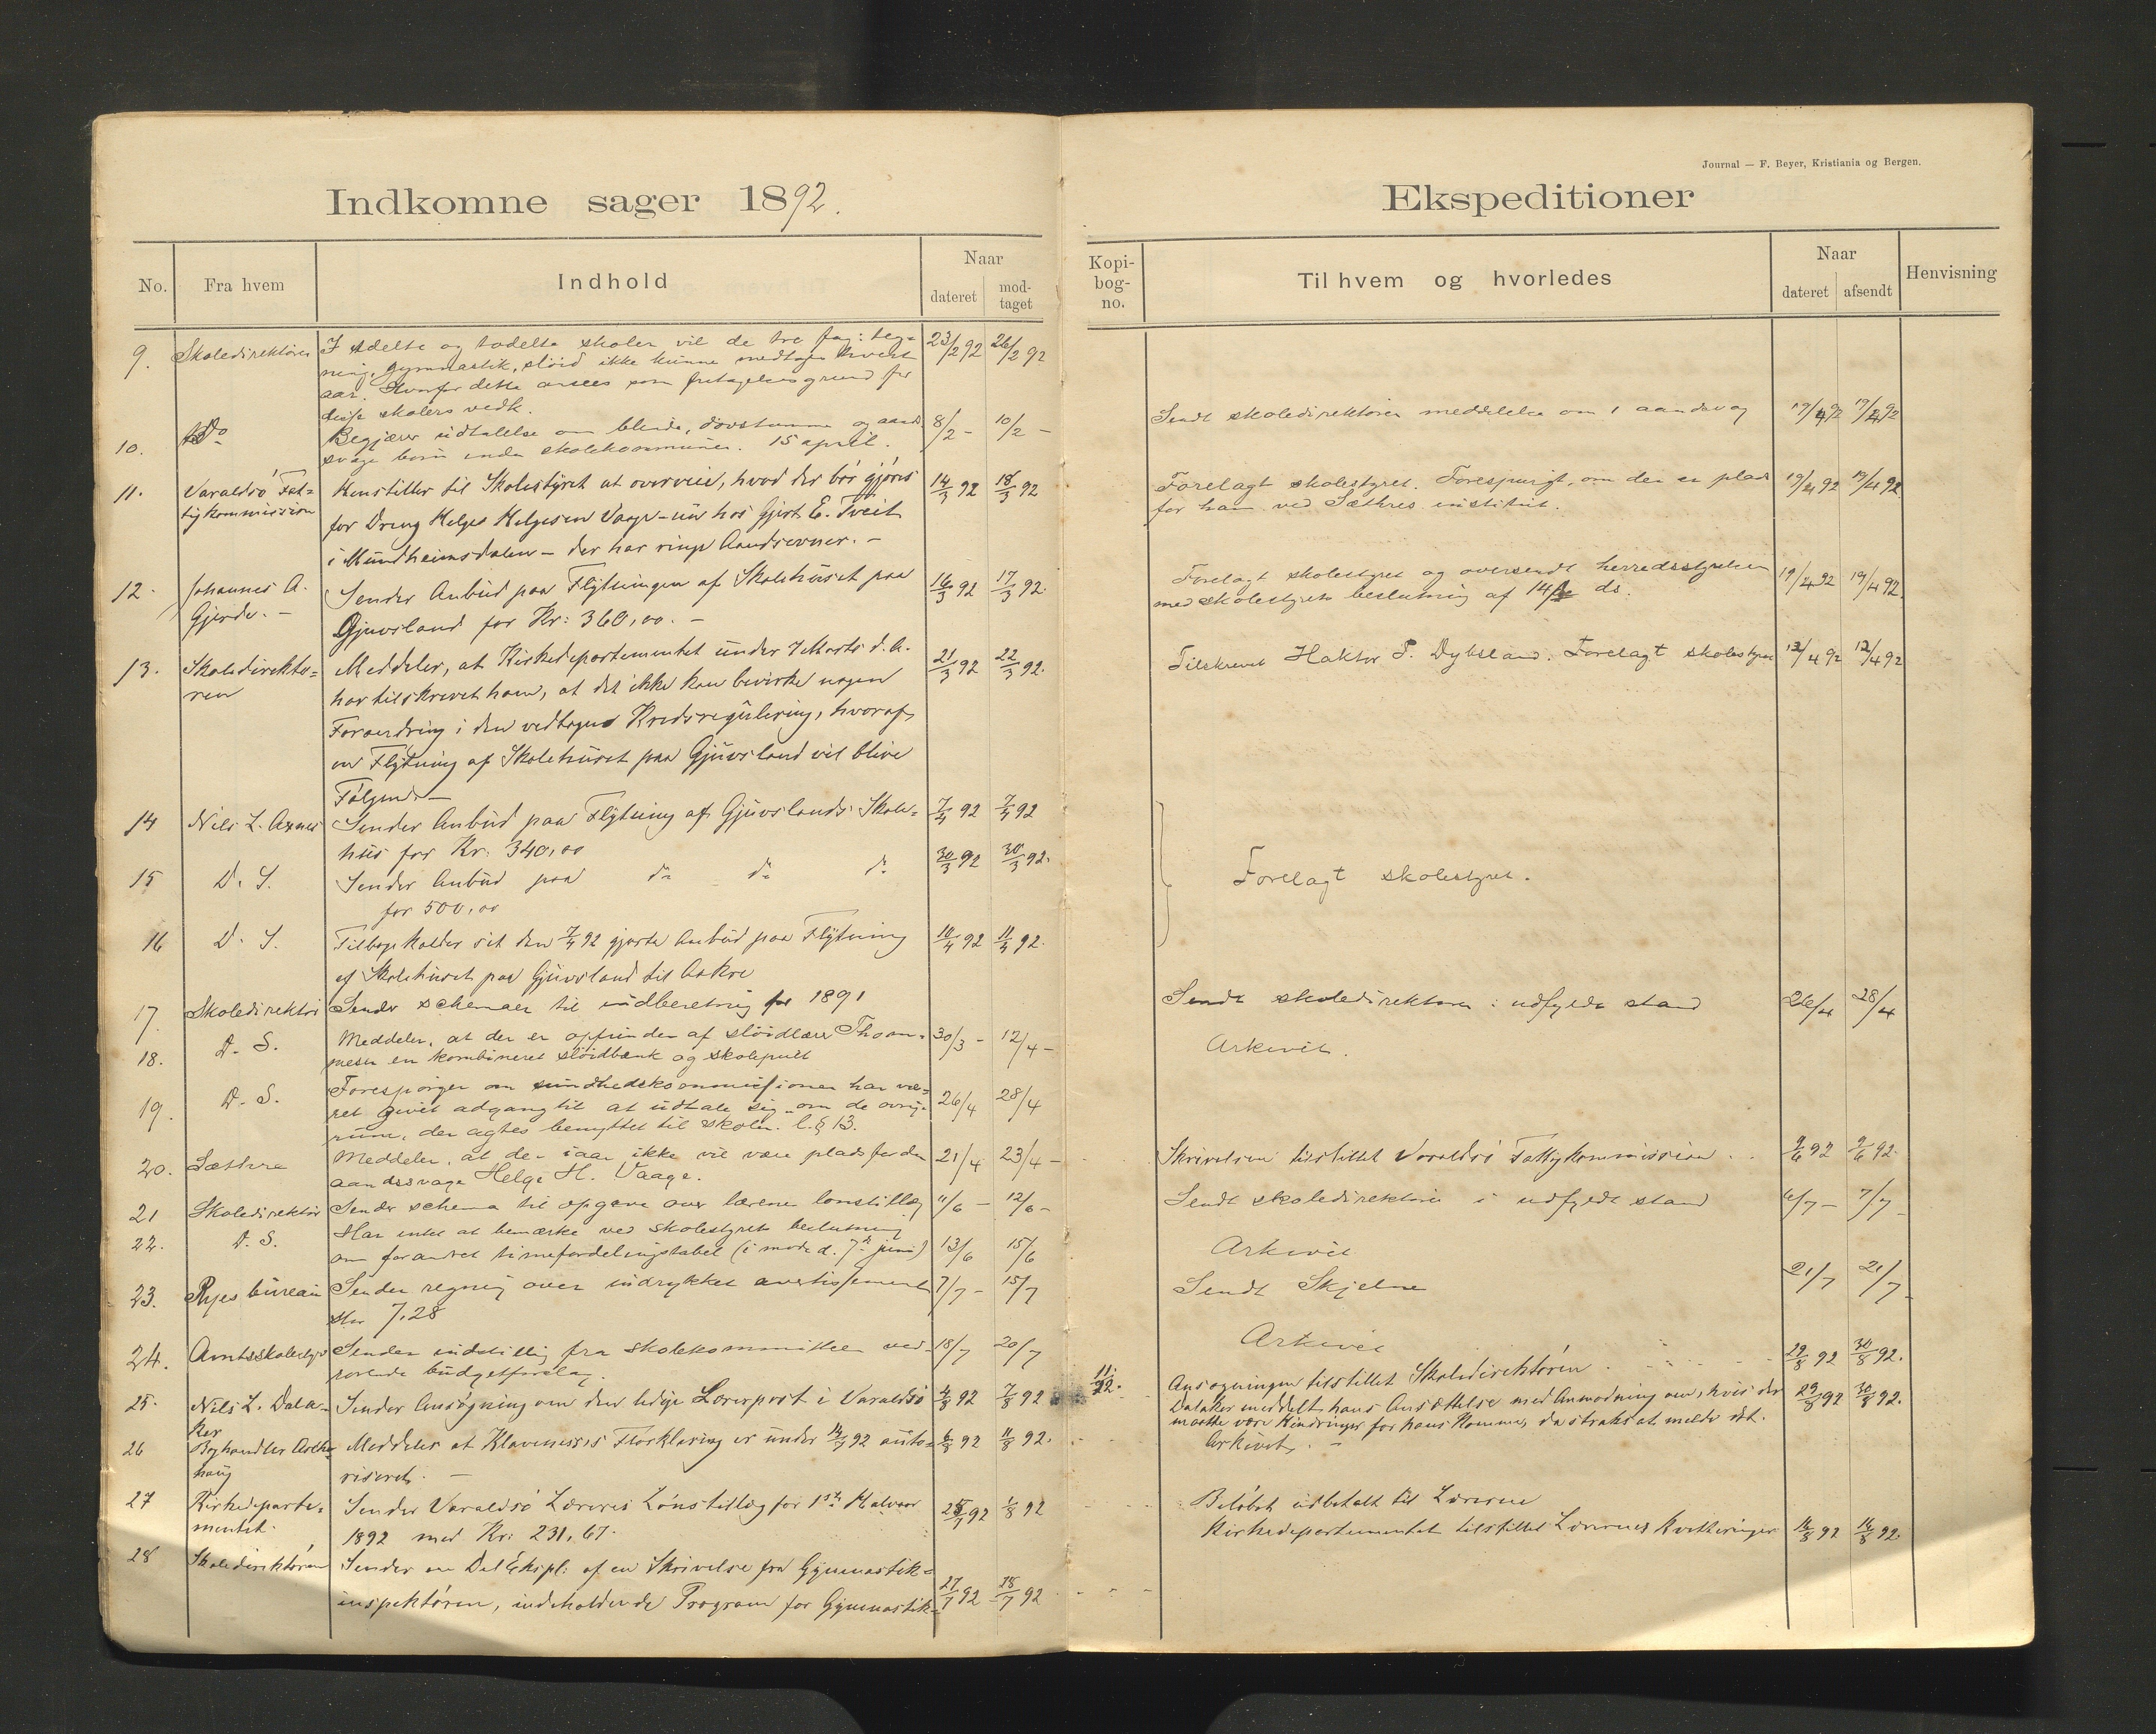 Indkomne sager 1892.
No.
Fra hvem
Indhold
Naar
dateret
mod-
taget
9.
Skoledirektøren
I
og todelte skoler vil de tre fag: teg=
ning, gymnastik, slöid ikke kunne medtages hvert
aar. Hvorfor dette ansees som fritagelsesgrund for
disse skolers vedk.
23/2 92
26/2 92
10.
Do
Begjærer udtalelse om blinde, dövstumme og aand
svage börn inden skolekommunen. 15 april.
8/2 -
10/2 -
11.
Varaldsö Fat=
tigkommission
Henstiller til Skolestyret at overveie, hvad der bör gjöres
for Dreng Helge Helgesen Vaage - nu hos Gjert E. Tveit
i Mundheimsdalen - der har ringe Aandsevner. -
14/3 92
18/3 92
12.
Johannes A.
Gjerde. -
Sender Anbud paa Flytningen af Skolehuset paa
Gjuvsland for Kr: 360,00. -
16/3 92
17/3 92.
13.
Skoledirektö=
ren
Meddeler, at Kirkedepartementet under 7 Marts d. A.
har tilskrevet ham, at det ikke kan bevirke nogen
Forandring i den vedtagne Kredsregulering, hvoraf
en Flytning af Skolehuset paa Gjuvsland vil blive
Fölgende -
21/3 92
22/3 92.
14
Nils L. Axnes
Sender Anbud paa Flytning af Gjuvslands Skole=
hus for Kr. 340,00
7/4 92
7/4 92
15
D. S.
Sender Anbud paa do do do
for 500,00
30/3 92
30/3 92.
16
D. S.
Tilbagekalder sit den 7/4 92 gjorte Anbud paa Flytning
af Skolehuset paa Gjuvsland til Aakre
10/4 92
11/4 92.
17
Skoledirektör
Sender schemaer til indberetning for 1891
18.
D. S.
Meddeler, at der er opfunden af slöidlærer Thom-
mesen en kombineret slöidbænk og skolepult
30/3 -
12/4 -
19.
D. S.
Forespörger om sundhedskommissionen har væ-
ret givet adgang til at udtale sig om de
rum, der agtes benyttet til skolen. l. § 13.
26/4
28/4
20.
Sæthre
Meddeler, at der iaar ikke vil være plads for den
aandssvage Helge H. Vaage.
21/4
23/4 -
21
Skoledirektör
Sender schema til opgave over lærernes lönstillæg
11/6 -
12/6 -
22.
D. S.
Har intet at bemærke ved skolestyrets beslutning
om forandret timefordelingstabel (i möde d. 7de juni)
13/6
15/6
23.
Ryes bureau
Sender regning over indrykket avertissement
stor 7,28
7/7 -
15/7
24.
Amtsskolestyr
Sender indstilling fra skolekommitteen ved-
rörende budgetforslag.
18/7
20/7
25.
Nils L. Dala-
ker
Sender Ansögning om den ledige Lærerpost i Varaldsö
4/8 92
7/8 92
26
Boghandler
haug
Meddeler at Klaveness's Forklaring er under 14/7 92 auto=
riseret. -
6/8 92
11/8 92.
27
Kirkedeparte=
mentet.
Sender Varaldsö Læreres Lönstillæg for 1ste Halvaar
1892 med Kr: 231,67.
92
1/8 92
28
Skoledirektören
Sender en Del Expl: af en Skrivelse fra Gymnastik=
inspektören, indeholdende Program for Gymnastik=
27/7 92
92
Journal — F. Beyer, Kristiania og Bergen.
Ekspeditioner
Kopi-
bog-
no.
Til hvem og hvorledes
Naar
dateret
afsendt
Henvisning
Sendt skoledirektören meddelelse om 1 aandsvag
19/4 92
19/4 92
Forelagt skolestyret. Forespurgt, om der er plads
for ham ved Sæthres institut.
19/4 92
19/4 92
Forelagt skolestyret og oversendt herredsstyrelsen
med skolestyrets beslutning af 14de ds.
19/4 92
19/4 92
Tilskrevet Haktor P. Dybsland. Forelagt skolestyret
12/4 92
12/4 92
Forelagt skolestyret.
Sendt skoledirektören i udfyldt stand
26/4
28/4
Arkivet.
Skrivelsen tilstillet Varaldsö Fattigkommission
9/6 92
9/6 92.
Sendt skoledirektören i udfyldt stand
6/7 -
7/7 -
Arkivet
Sendt Skjelnes
21/7
21/7 -
Arkivet
Ansøgningen tilstillet Skoledirektören
29/8 92
30/8 92.
Dalaker meddelt hans Ansættelse med Anmodning om, hvis der
maatte være Hindringer for hans Komme, da straks at melde det.
29/8 92
30/8 92.
Arkivet. -
Belöbet udbetalt til Lærerne
Kirkedepartementet tilstillet Lærernes Kvitteringer
16/8 92
16/8 92.